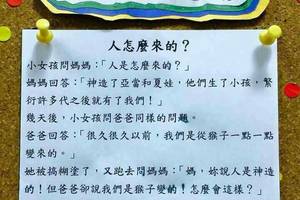 人怎麼來的？
小女孩問媽媽：「人是怎麼來的？」
媽媽回答：「神造了亞當和夏娃，他們生了小孩，繁
衍許多代之後就有了我們！」
幾天後，小女孩問爸爸同樣的問題。
爸爸回答：「很久很久以前，我們是從猴子一點一點
變來的。」
她被搞糊塗了，又跑去問媽媽：「媽，妳說人是神造
的！但爸爸卻說我們是猴子變的！怎麼會這樣？」